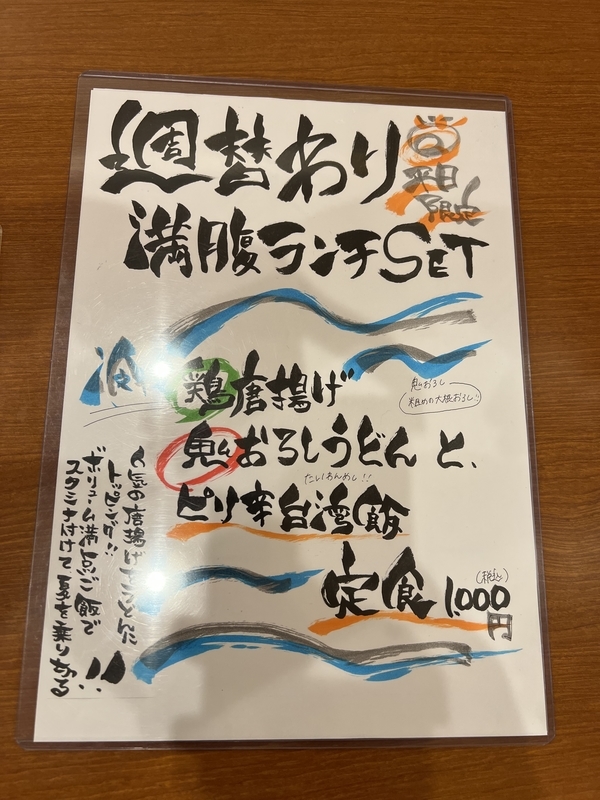 週替わり
平日
限定
満腹ランチSET
冷
鶏唐揚げ
鬼おろし
粗めの大根おろし!!
鬼おろしうどんと、
たいわんめし!!
ピリ辛台湾飯
定食 1.000円
(税込)
人気の唐揚げをうどんに
トッピング!!
ボリューム満点ご飯で
スタミナ付けて夏を乗り切る!!